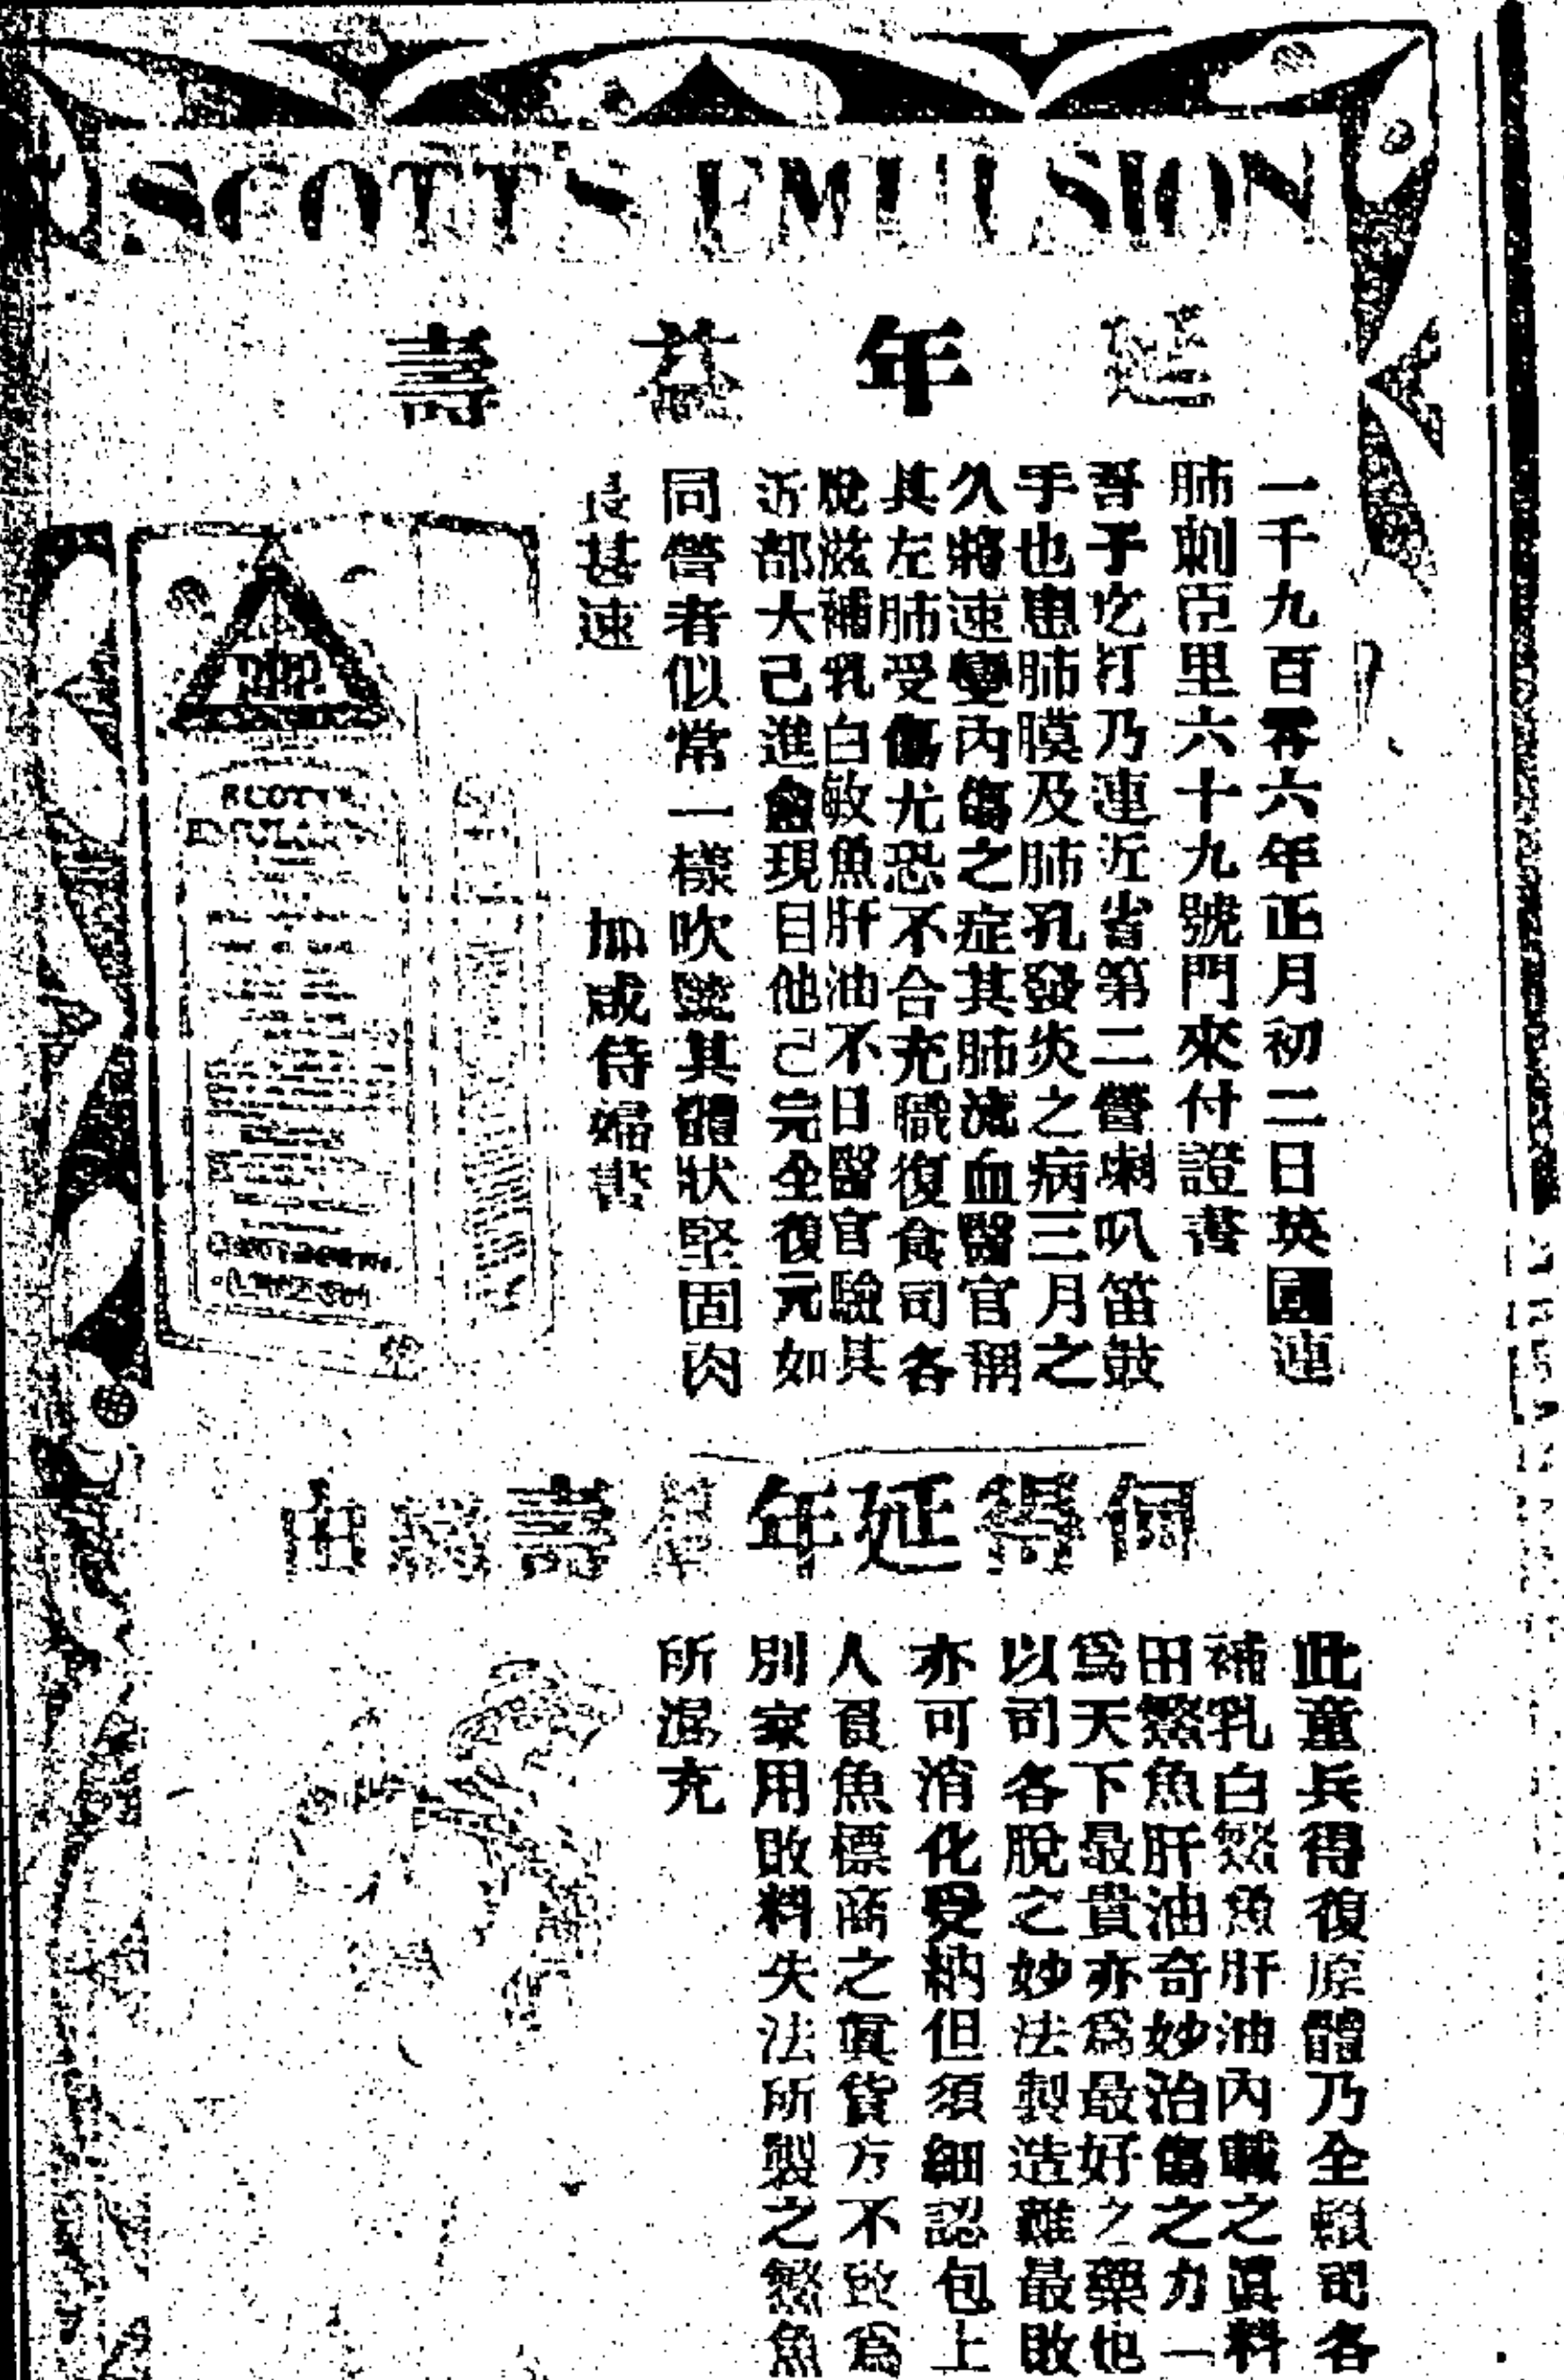 SCOTT'S EMULSION
延年益壽
一千九百零六年正月初二日英國連
肺刺臣里六十九號門來付證書
吾子疙汀乃連近省第二營喇叭笛鼓
手也患肺膜及肺孔發炎之病三月之
久將速變內傷之症其肺流血醫官稱
其左肺受傷尤恐不合充職復食司各
脫滋補乳白鰵魚肝油不日醫官驗其
近部大己進愈現目他己完全復元如
同營者似常一樣吹號其體狀堅固肉
長甚速
加咸侍婦書
SCOTT'S
何得延年 壽 由
此童兵得復原體乃全賴司各
補乳白鰵魚肝油內載之眞料
田鰵魚肝油奇妙治傷之力一
爲天下最貴亦爲最好之藥也
以司各脫之妙法製造雖最敗
亦可消化受納但須細認包上
人負魚標商之眞貨方不致爲
別家用敗料失法所製之鰵魚
所混充